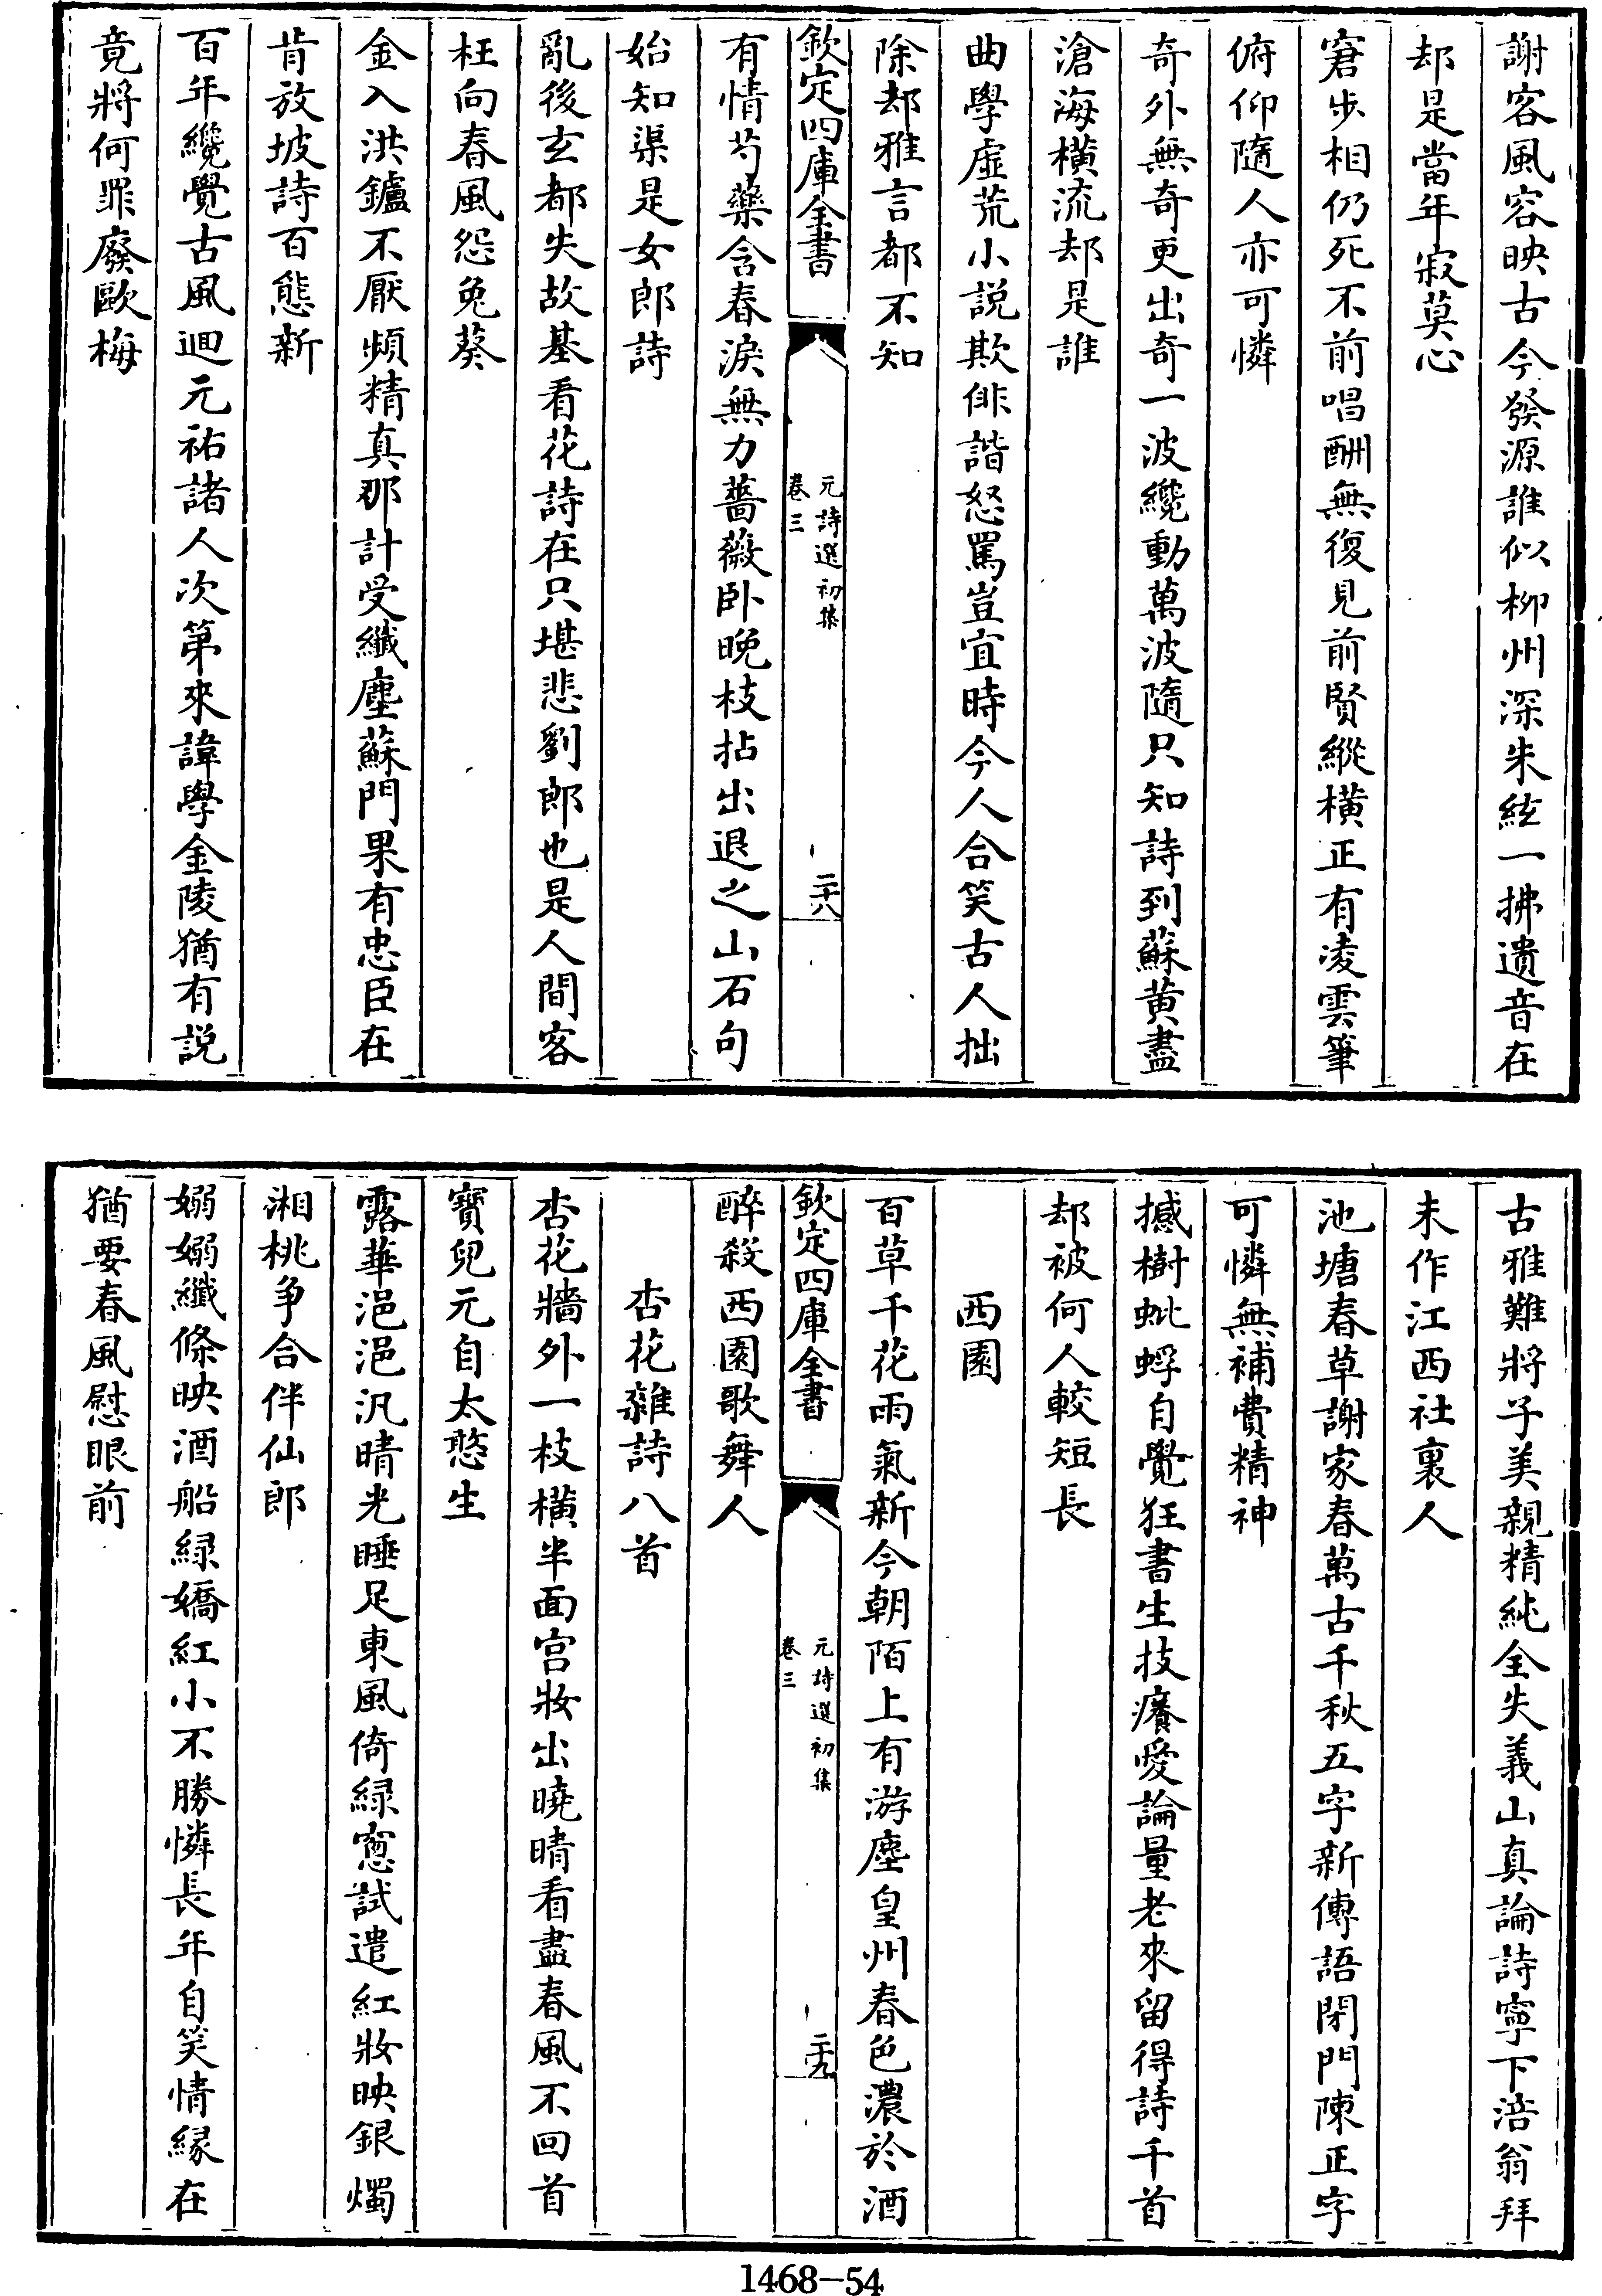 謝客風容映古今發源誰似柳州深朱絃一拂遺音在
却是當年寂莫心
窘步相仍死不前唱酬無復見前賢縱橫正有凌雲筆
俯仰隨人亦可憐
奇外無奇更出奇一波纔動萬波隨只知詩到蘇黄盡
滄海橫流却是誰
曲學虛荒小說欺俳諧怒罵豈宜時今人合笑古人拙
除却雅言都不知
欽定四庫全書
元詩選初集
卷三
二十八
有情芍藥含春淚無力薔薇卧晚枝拈出退之山石句
始知渠是女郎詩
亂後玄都失故基看花詩在只堪悲劉郎也是人間客
枉向春風怨兔葵
金入洪鑪不厭頻精真那計受纖塵蘇門果有忠臣在
肯放坡詩百態新
百年纔覺古風迴元祐諸人次第來諱學金陵猶有説
竟將何罪廢歐梅
古雅難將子美親精純全失義山真論詩寧下涪翁拜
未作江西社裏人
池塘春草謝家春萬古千秋五字新傳語閉門陳正字
可憐無補費精神
撼樹蚍蜉自覺狂書生技癢愛論量老來留得詩千首
却被何人較短長
西園
百草千花雨氣新今朝陌上有游塵皇州春色濃於酒
欽定四庫全書
元詩選初集
卷三
二十九
醉殺西園歌舞人
杏花雜詩八首
杏花牆外一枝橫半面宫妝出曉晴看盡春風不回首
寶兒元自太憨生
露華浥浥汎晴光睡足東風倚緑窻試遣紅妝映銀燭
湘桃争合伴仙郎
嫋嫋纖條映酒船緑嬌紅小不勝憐長年自笑情緣在
猶要春風慰眼前
1468-54